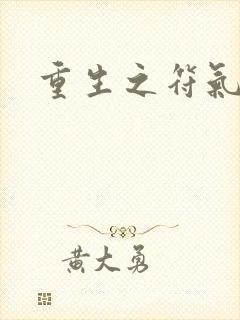 重生之符氣
黃大勇